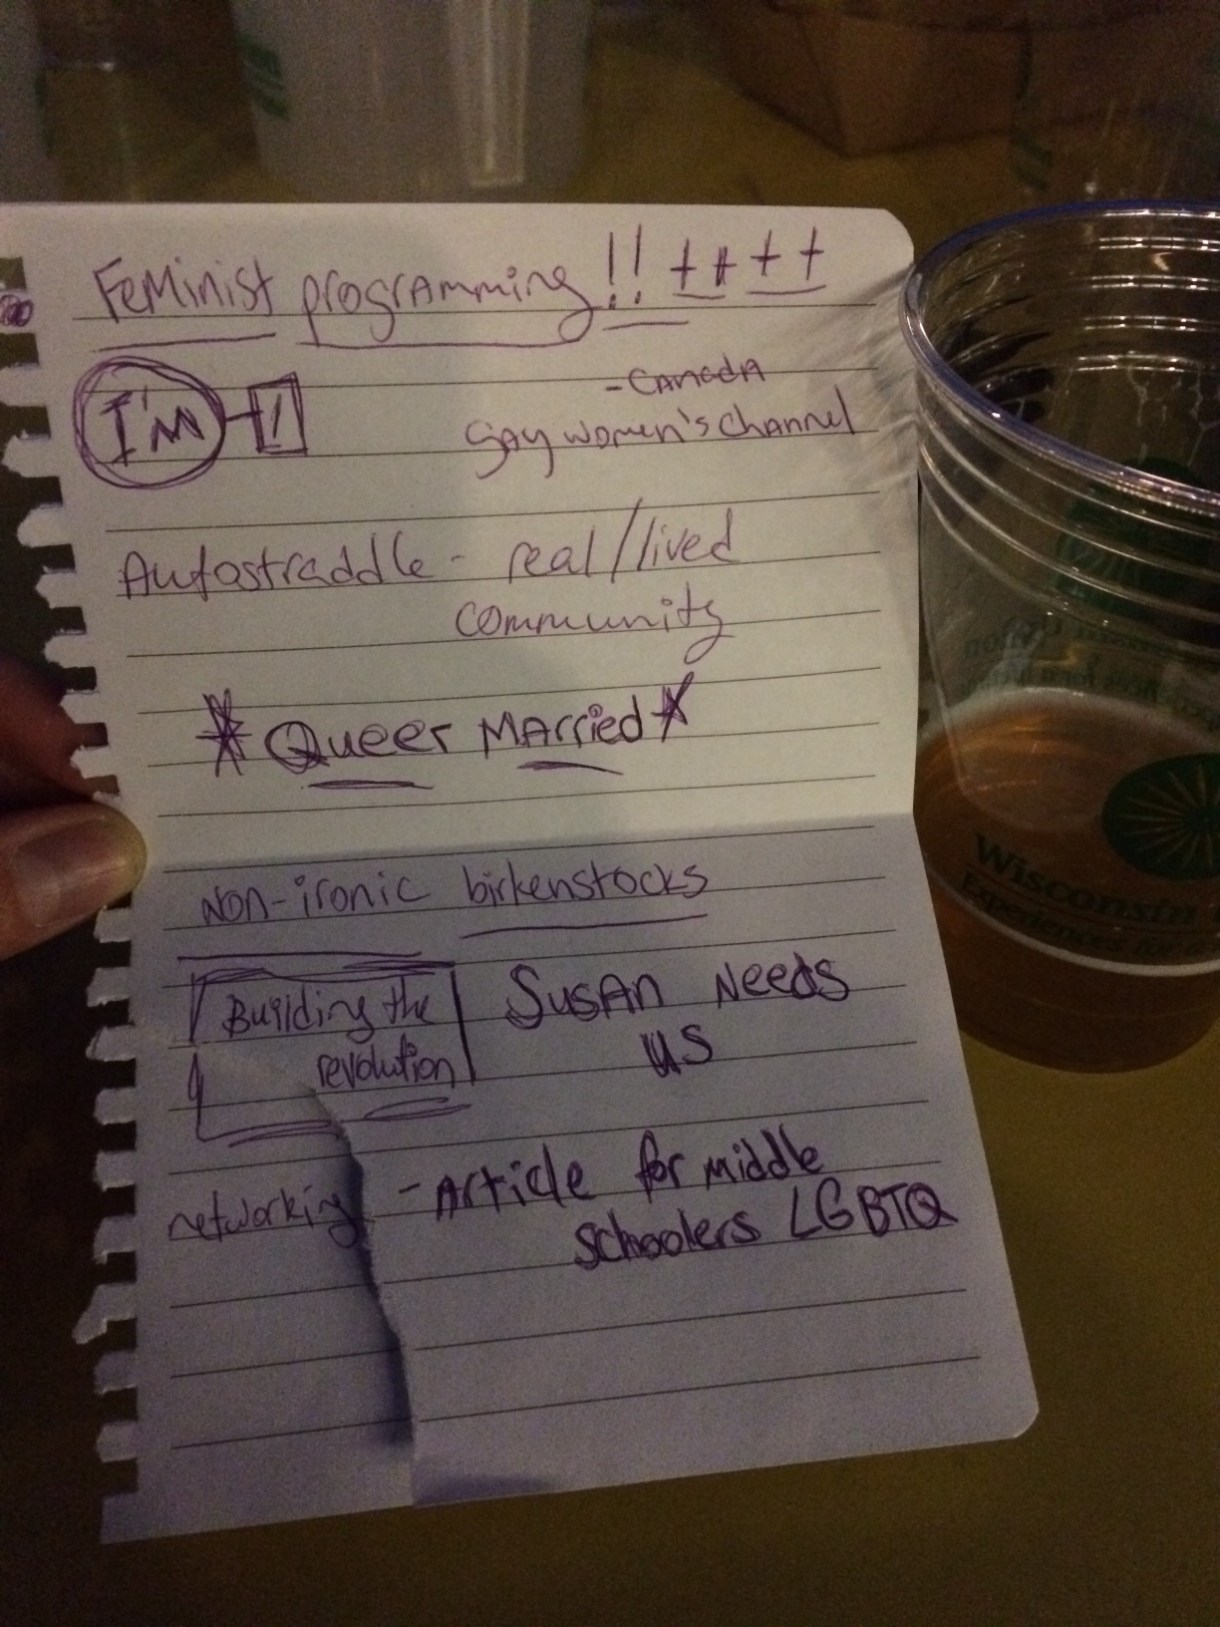 Feminist programming!! ++ ++
I'm - !
- Canada
gay women's channel
Autostraddle - real/lived
community
* Queer Married *
Non-ironic birkenstocks
Building the
revolution
Susan Needs
us
networking
- Article for middle
schoolers LGBTQ
Wisconsin
Experiences for a